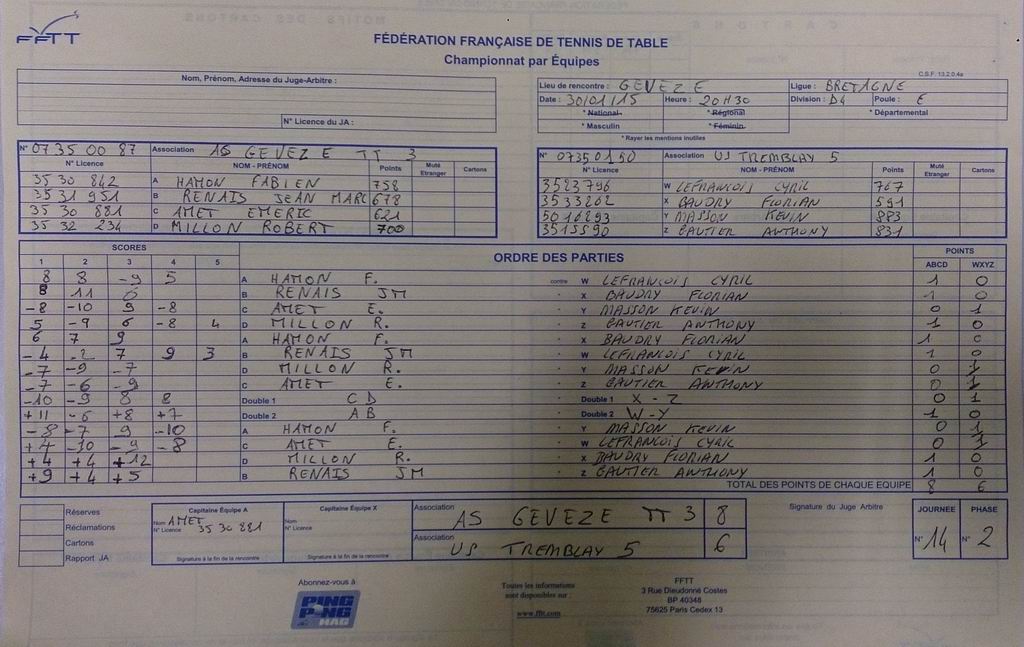 FFTT
FÉDÉRATION FRANÇAISE DE TENNIS DE TABLE
Championnat par Équipes
C.S.F. 13.2.0.4a
Nom, Prénom, Adresse du Juge-Arbitre :
N° Licence du JA :
Lieu de rencontre : GEVEZE Ligue : BRETAGNE
Date : 30/01/15 Heure : 20H30 Division : D4 Poule : E
* National * Régional * Départemental
* Masculin * Féminin
* Rayer les mentions inutiles
N° 07 35 00 87 Association AS GEVEZE TT 3
N° Licence NOM - PRÉNOM Points Muté Etranger Cartons
35 30 842 A HAMON FABIEN 758
35 31 951 B RENAIS JEAN MARC 678
35 30 881 C AMET EMERIC 621
35 32 234 D MILLON ROBERT 700
N° 07350150 Association US TREMBLAY 5
N° Licence NOM - PRÉNOM Points Muté Etranger Cartons
3523796 W LEFRANCOIS CYRIL 767
3533202 X BAUDRY FLORIAN 591
5016293 Y MASSON KEVIN 883
3515590 Z GAUTIER ANTHONY 831
SCORES ORDRE DES PARTIES POINTS
1 2 3 4 5 ABCD WXYZ
8 8 -9 5 A HAMON F. contre W LEFRANCOIS CYRIL 1 0
8 11 6 B RENAIS JM - X BAUDRY FLORIAN 1 0
-8 -10 9 -8 C AMET E. - Y MASSON KEVIN 0 1
5 -9 6 -8 4 D MILLON R. - Z GAUTIER ANTHONY 1 0
6 7 9 A HAMON F. - X BAUDRY FLORIAN 1 0
-4 -2 7 9 3 B RENAIS JM - W LEFRANCOIS CYRIL 1 0
-7 -9 -7 D MILLON R. - Y MASSON KEVIN 0 1
-7 -6 -9 C AMET E. - Z GAUTIER ANTHONY 0 1
-10 -9 8 8 Double 1 C D - Double 1 X - Z 0 1
+11 -6 +8 +7 Double 2 A B - Double 2 W - Y 1 0
-8 -7 9 -10 A HAMON F. - Y MASSON KEVIN 0 1
+4 -10 -9 -8 C AMET E. - W LEFRANCOIS CYRIL 0 1
+4 +4 +12 D MILLON R. - X BAUDRY FLORIAN 1 0
+9 +4 +5 B RENAIS JM - Z GAUTIER ANTHONY 1 0
TOTAL DES POINTS DE CHAQUE EQUIPE 8 6
Réserves
Réclamations
Cartons
Rapport JA
Capitaine Équipe A
Nom AMET
N° Licence 35 30 881
Signature à la fin de la rencontre
Capitaine Équipe X
Nom
N° Licence
Signature à la fin de la rencontre
Association AS GEVEZE TT 3 8
Association US TREMBLAY 5 6
Signature du Juge Arbitre
JOURNEE PHASE
N° 14 N° 2
Abonnez-vous à
PING PONG MAG
Toutes les informations
sont disponibles sur :
www.fftt.com
FFTT
3 Rue Dieudonné Costes
BP 40348
75625 Paris Cedex 13